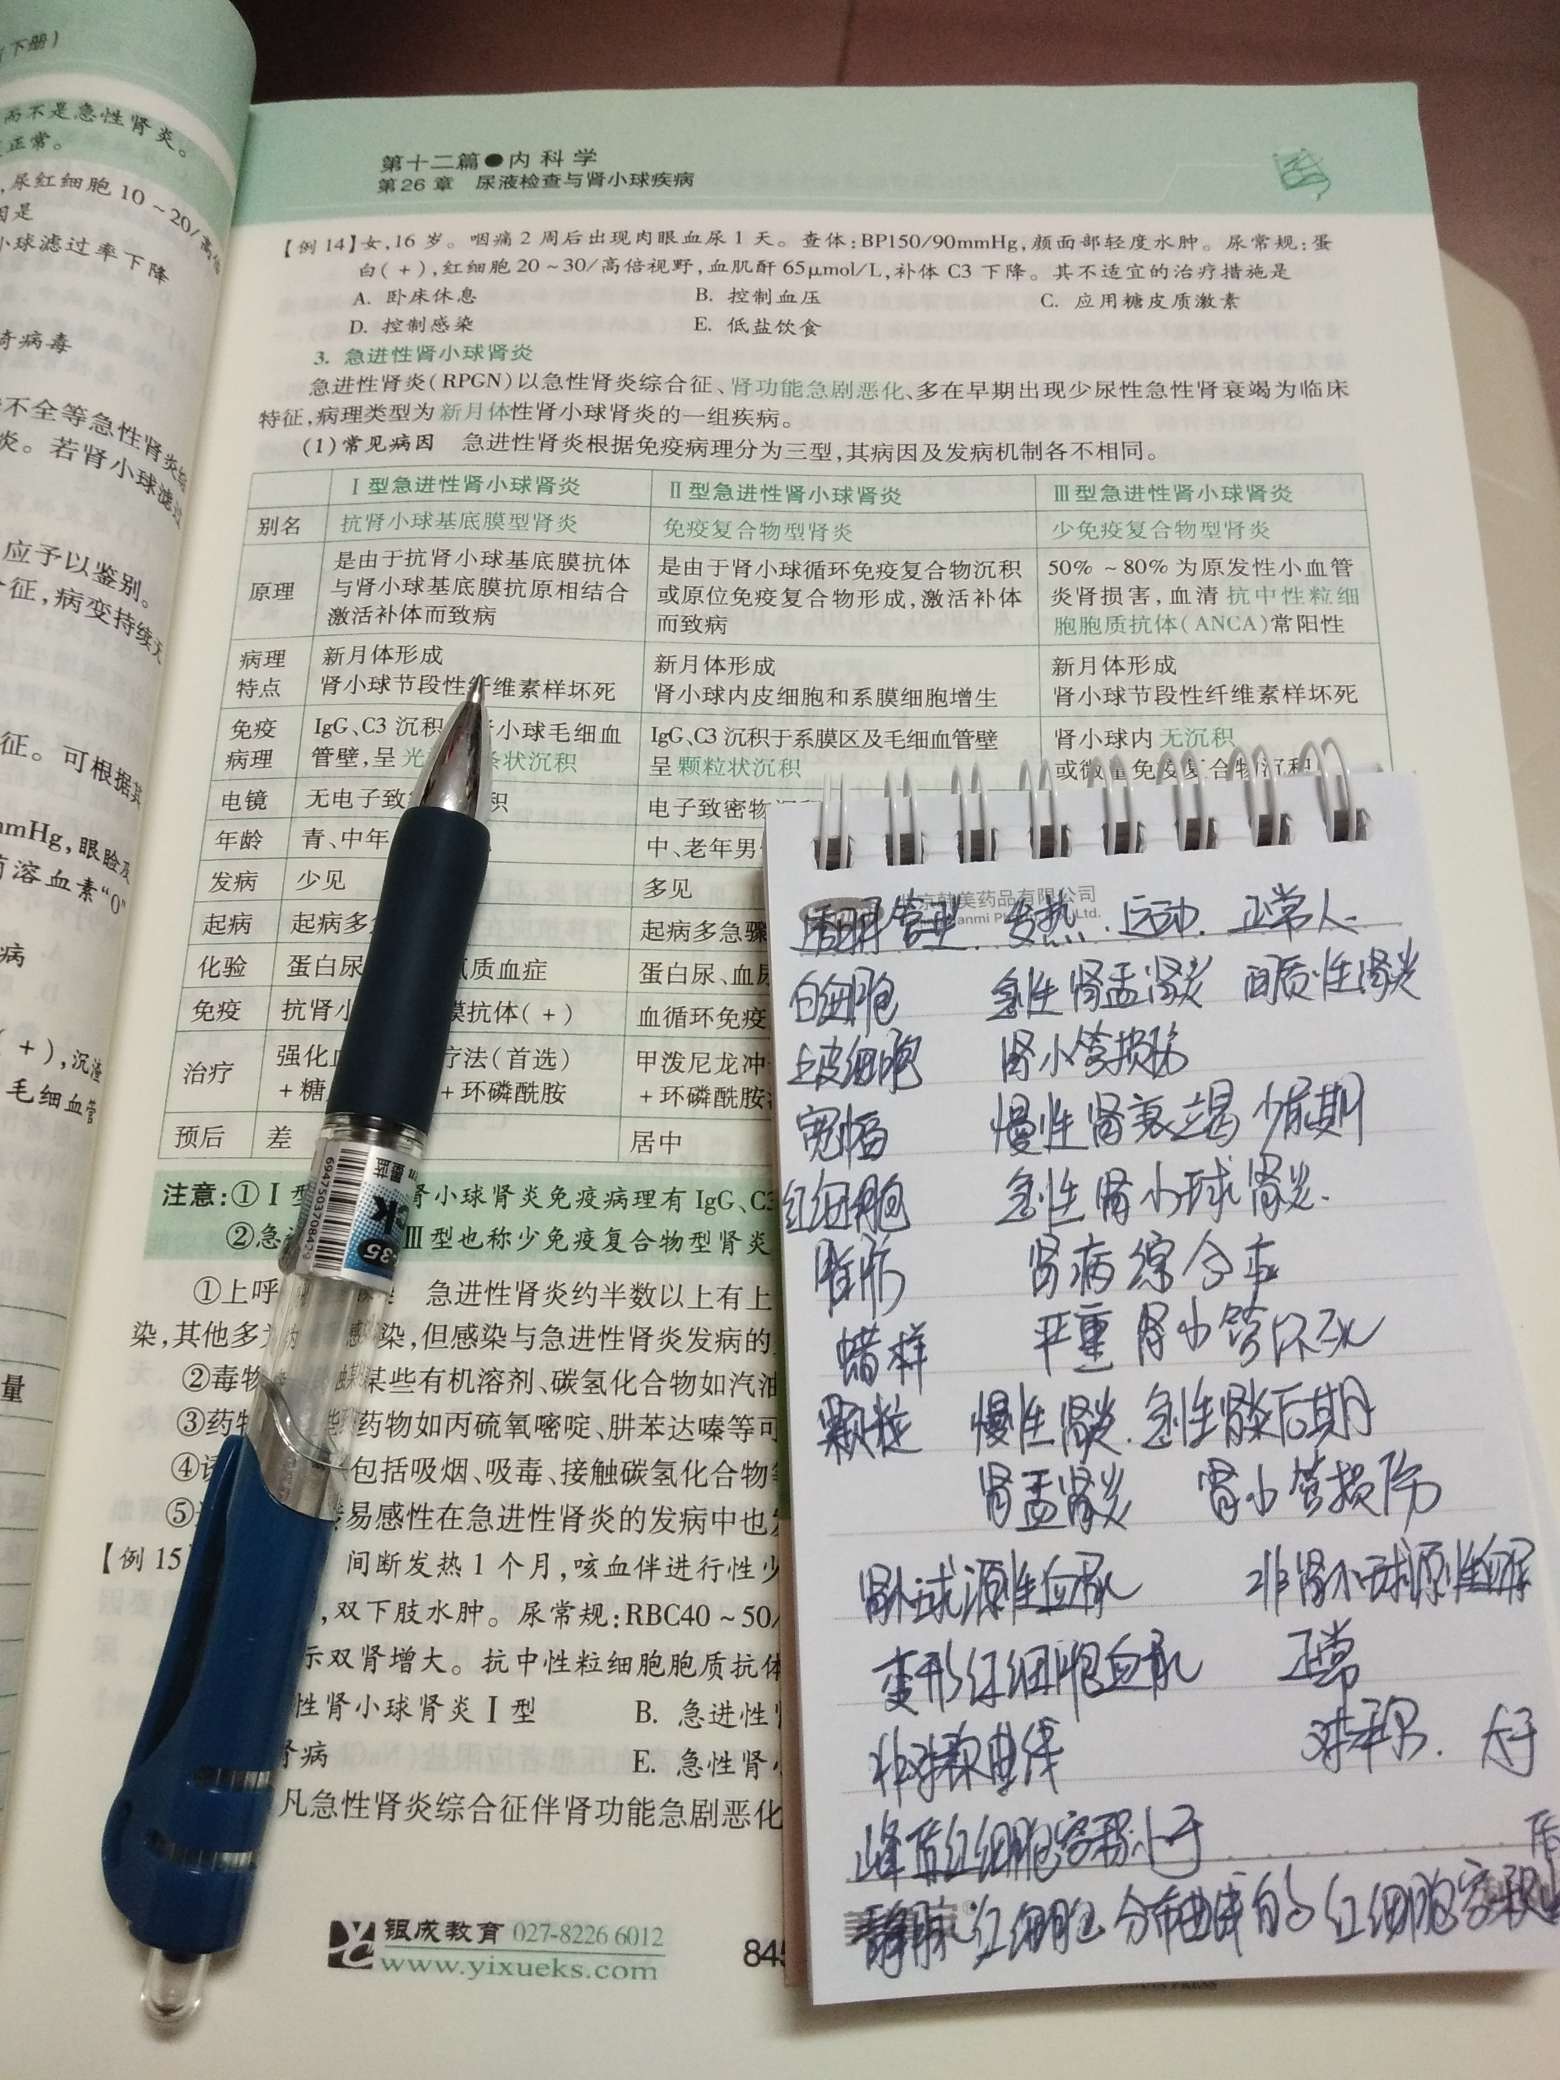 (下册)
而不是急性肾炎。
正常。
,尿红细胞10～20/高倍
因是
小球滤过率下降
奇病毒
不全等急性肾炎综
炎。若肾小球滤过
应予以鉴别。
征,病变持续无
征。可根据其
mmHg,眼睑及
菌溶血素“O”
病
(+),沉渣
毛细血管
量
第十二篇●内科学
第26章 尿液检查与肾小球疾病
【例14】女,16岁。咽痛2周后出现肉眼血尿1天。查体:BP150/90mmHg,颜面部轻度水肿。尿常规:蛋
白(+),红细胞20～30/高倍视野,血肌酐65μmol/L,补体C3下降。其不适宜的治疗措施是
A. 卧床休息 B. 控制血压 C. 应用糖皮质激素
D. 控制感染 E. 低盐饮食
3. 急进性肾小球肾炎
急进性肾炎(RPGN)以急性肾炎综合征、肾功能急剧恶化、多在早期出现少尿性急性肾衰竭为临床
特征,病理类型为新月体性肾小球肾炎的一组疾病。
(1)常见病因 急进性肾炎根据免疫病理分为三型,其病因及发病机制各不相同。
Ⅰ型急进性肾小球肾炎 Ⅱ型急进性肾小球肾炎 Ⅲ型急进性肾小球肾炎
别名 抗肾小球基底膜型肾炎 免疫复合物型肾炎 少免疫复合物型肾炎
原理 是由于抗肾小球基底膜抗体与肾小球基底膜抗原相结合激活补体而致病 是由于肾小球循环免疫复合物沉积或原位免疫复合物形成,激活补体而致病 50%～80%为原发性小血管炎肾损害,血清抗中性粒细胞胞质抗体(ANCA)常阳性
病理特点 新月体形成 肾小球节段性纤维素样坏死 新月体形成 肾小球内皮细胞和系膜细胞增生 新月体形成 肾小球节段性纤维素样坏死
免疫病理 IgG、C3沉积 肾小球毛细血管壁,呈光 条状沉积 IgG、C3沉积于系膜区及毛细血管壁 呈颗粒状沉积 肾小球内无沉积 或微量免疫复合物沉积
电镜 无电子致 积 电子致密物
年龄 青、中年 中、老年男
发病 少见 多见
起病 起病多 起病多急骤
化验 蛋白尿 质血症 蛋白尿、血尿
免疫 抗肾小 膜抗体(+) 血循环免疫
治疗 强化血 疗法(首选) +糖 +环磷酰胺 甲泼尼龙冲 +环磷酰胺
预后 差 居中
注意:①Ⅰ型 肾小球肾炎免疫病理有IgG、C3
②急 Ⅲ型也称少免疫复合物型肾炎
①上呼 急进性肾炎约半数以上有上
染,其他多为 感染,但感染与急进性肾炎发病的
②毒物 某些有机溶剂、碳氢化合物如汽油
③药物 药物如丙硫氧嘧啶、肼苯达嗪等可
④ 包括吸烟、吸毒、接触碳氢化合物等
⑤ 易感性在急进性肾炎的发病中也
【例15】 间断发热1个月,咳血伴进行性少
,双下肢水肿。尿常规:RBC40～50/
示双肾增大。抗中性粒细胞胞质抗体
性肾小球肾炎Ⅰ型 B. 急进性
肾病 E. 急性肾小
凡急性肾炎综合征伴肾功能急剧恶化
银成教育 027-8226 6012
www.yixueks.com
845
6947503708429
北京韩美药品有限公司
透明管型. 发热. 运动. 正常人.
白细胞 急性肾盂肾炎 间质性肾炎
上皮细胞 肾小管损伤
宽幅 慢性肾衰竭少尿期
红细胞 急性肾小球肾炎.
脂肪 肾病综合征
蜡样 严重肾小管坏死
颗粒 慢性肾炎.急性肾炎后期
肾盂肾炎 肾小管损伤
肾小球源性血尿 非肾小球源性血尿
变形红细胞血尿 正常
非对称曲线 对称. 大于
峰值红细胞容积小于
静脉红细胞分布曲线的红细胞容积